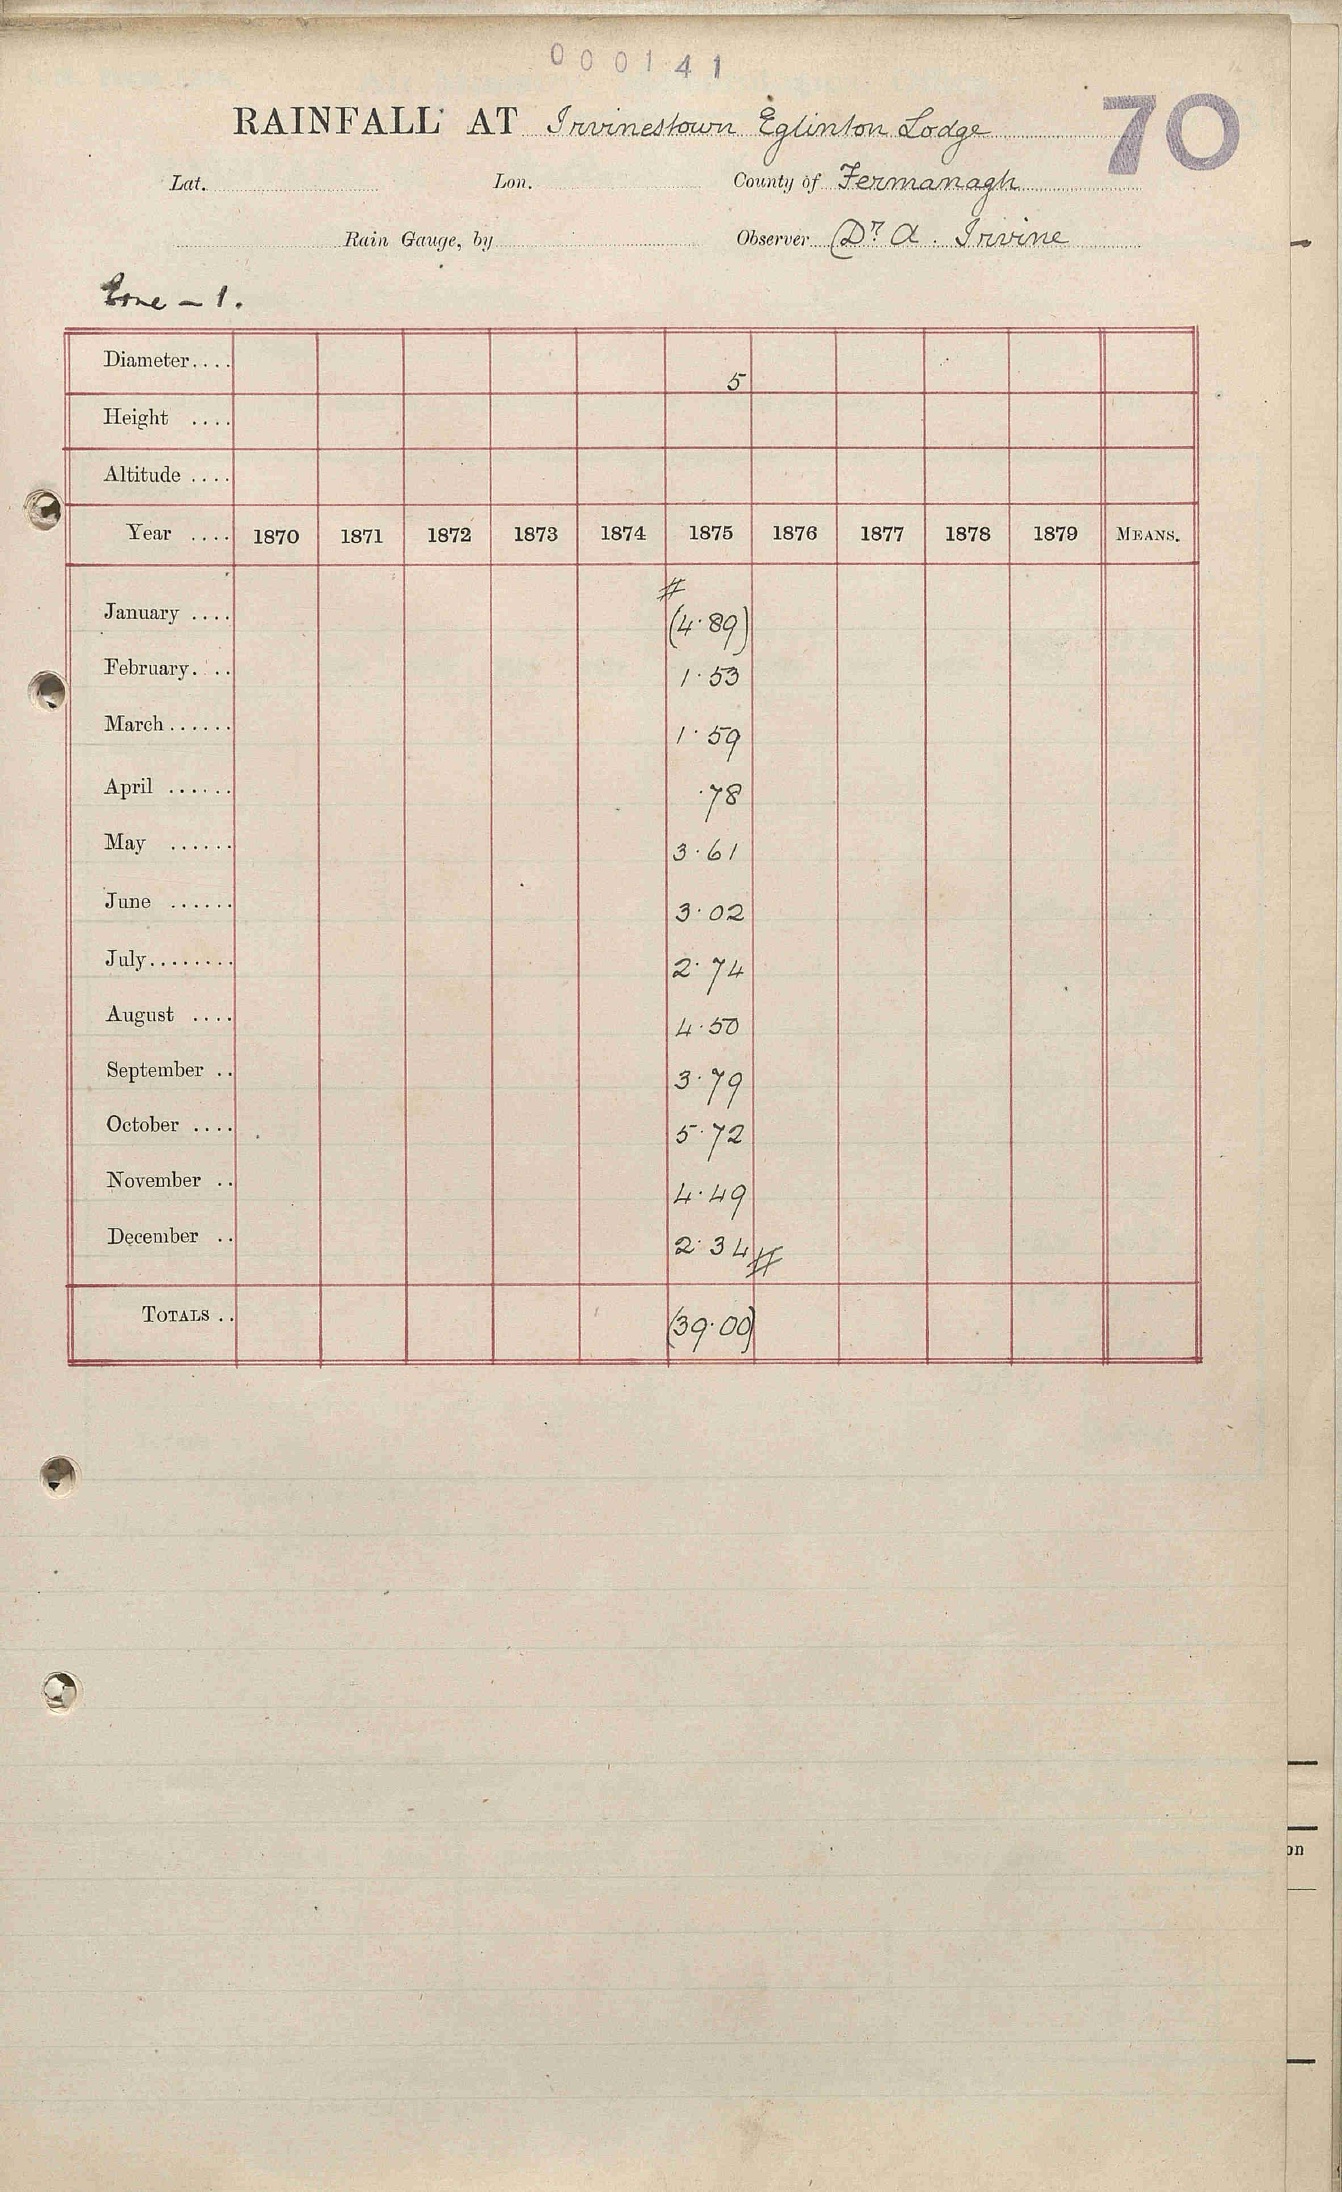 000141
RAINFALL AT Irvinestown Eglinton Lodge 70
Lat. Lon. County of Fermanagh
Rain Gauge, by Observer Dr. A. Irvine
Erne – 1.
Diameter.... 5
Height ....
Altitude ....
Year .... 1870 1871 1872 1873 1874 1875 1876 1877 1878 1879 MEANS.
#
January .... (4·89)
February. .. 1·53
March...... 1·59
April ...... ·78
May ...... 3·61
June ...... 3·02
July........ 2·74
August .... 4·50
September .. 3·79
October .... 5·72
November .. 4·49
December .. 2·34 #
TOTALS .. (39·00)
on